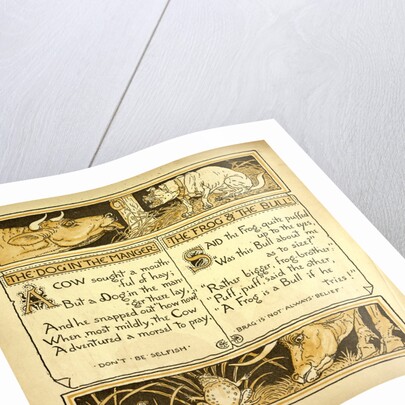 THE DOG IN THE MANGER
A COW sought a mouth-
ful of hay;
But a Dog in the man-
ger there lay,
And he snapped out "how now?"
When most mildly, the Cow
Adventured a morsel to pray.
· DON'T · BE · SELFISH ·
THE FROG & THE BULL
SAID the Frog, quite puffed
up to the eyes,
"Was this Bull about me
as to size?"
"Rather bigger, frog-brother."
"Puff, puff," said the other,
"A Frog is a Bull if he
tries!"
BRAG IS NOT ALWAYS BELIEF ·